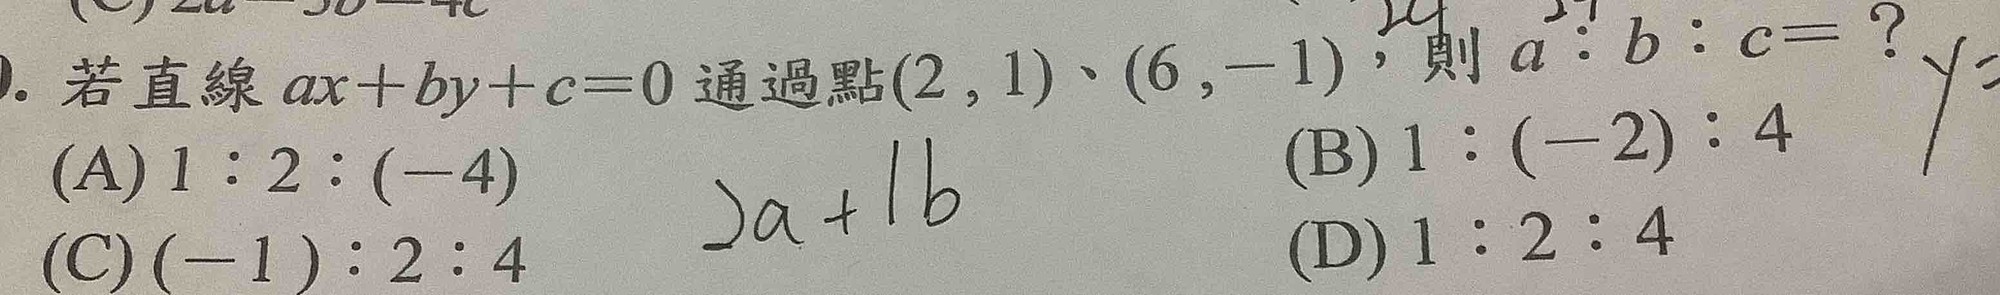 . 若直線 ax+by+c=0 通過點(2 , 1)、(6 , -1),則 a:b:c=?
y=
(A) 1:2:(-4)
(B) 1:(-2):4
2a+1b
(C) (-1):2:4
(D) 1:2:4